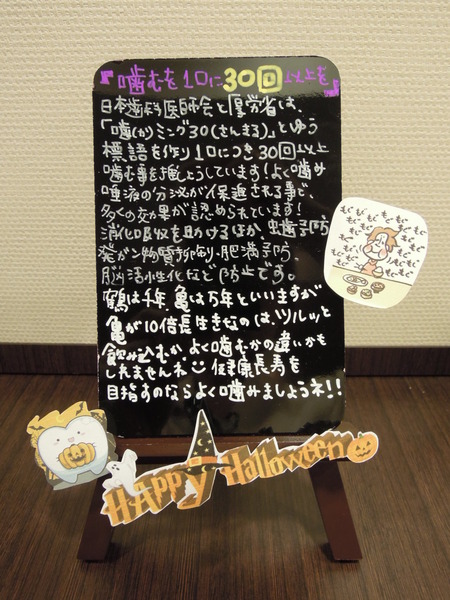 『噛むを1口に30回以上を』
日本歯科医師会と厚労省は、
「噛(か)ミング30(さんまる)」とゆう
標語を作り1口につき30回以上
噛む事を推しょうしています!よく噛み
唾液の分泌が促進される事で、
多くの効果が認められています!
消化吸収を助けるほか、虫歯予防
発ガン物質抑制・肥満予防、
脳活性化など防止です。
鶴は千年、亀は万年といいますが
亀が10倍長生きなのは、ツルッと
飲み込むか、よく噛むかの違いかも
しれませんネ 健康長寿を
目指すのならよく噛みましょうネ!!
もぐもぐ もぐもぐ もぐもぐ
HAppy Halloween